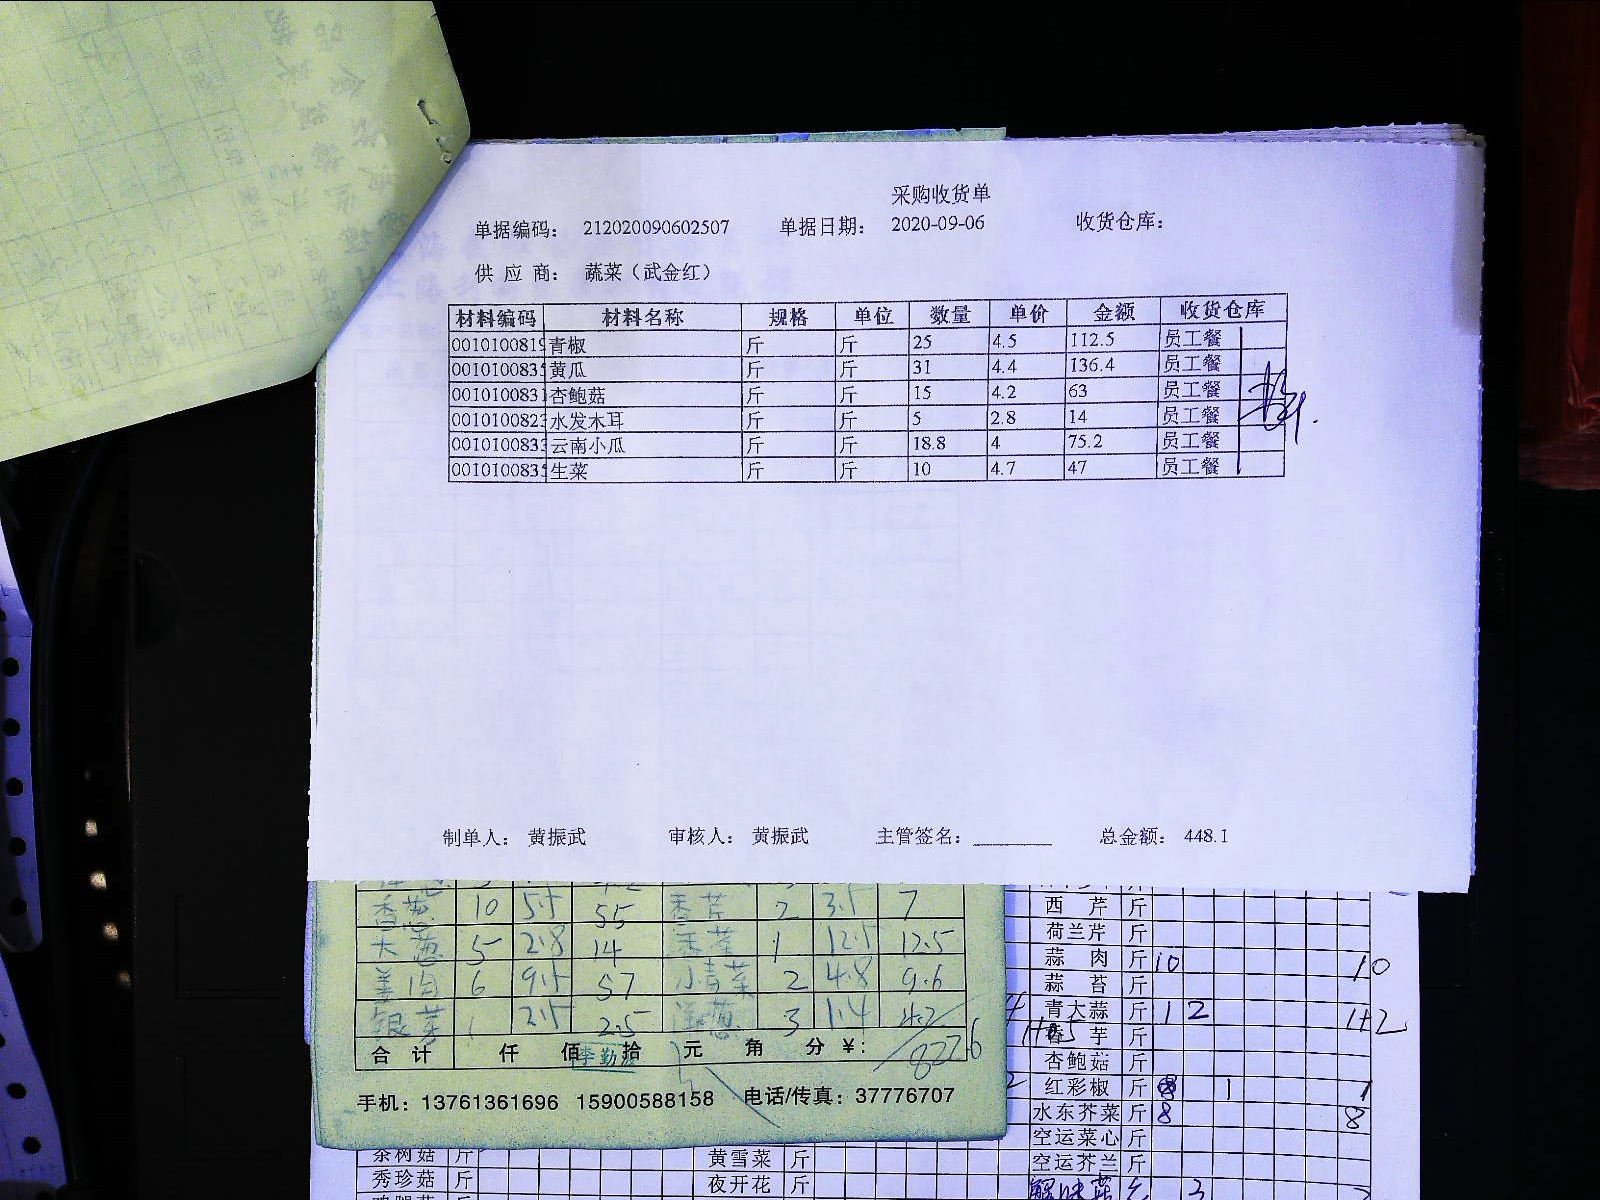 采购收货单
单据编码： 212020090602507 单据日期： 2020-09-06 收货仓库：
供 应 商： 蔬菜（武金红）
材料编码 材料名称 规格 单位 数量 单价 金额 收货仓库
0010100819 青椒 斤 斤 25 4.5 112.5 员工餐
001010083 黄瓜 斤 斤 31 4.4 136.4 员工餐
001010083 杏鲍菇 斤 斤 15 4.2 63 员工餐
001010082 水发木耳 斤 斤 5 2.8 14 员工餐
001010083 云南小瓜 斤 斤 18.8 4 75.2 员工餐
001010083 生菜 斤 斤 10 4.7 47 员工餐
制单人： 黄振武 审核人： 黄振武 主管签名： 总金额： 448.1
香葱 10 5.5 55 香芹 2 3.5 7
大葱 5 2.8 14 1 12.5 12.5
姜肉 6 9.5 57 小青菜 2 4.8 9.6
银芽 1 2.5 2.5 洋葱 3 1.4 4.2
合 计 仟 佰 拾 元 角 分 ¥： 827.6
李勤
手机：13761361696 15900588158 电话/传真：37776707
西 芹 斤
荷兰芹 斤
蒜 肉 斤 10 10
蒜 苔 斤
青大蒜 斤 1 2 1+2
香 芋 斤
杏鲍菇 斤
红彩椒 斤 1 1
水东芥菜 斤 8 8
空运菜心 斤
空运芥兰 斤
茶树菇 斤 黄雪菜 斤
秀珍菇 斤 夜开花 斤